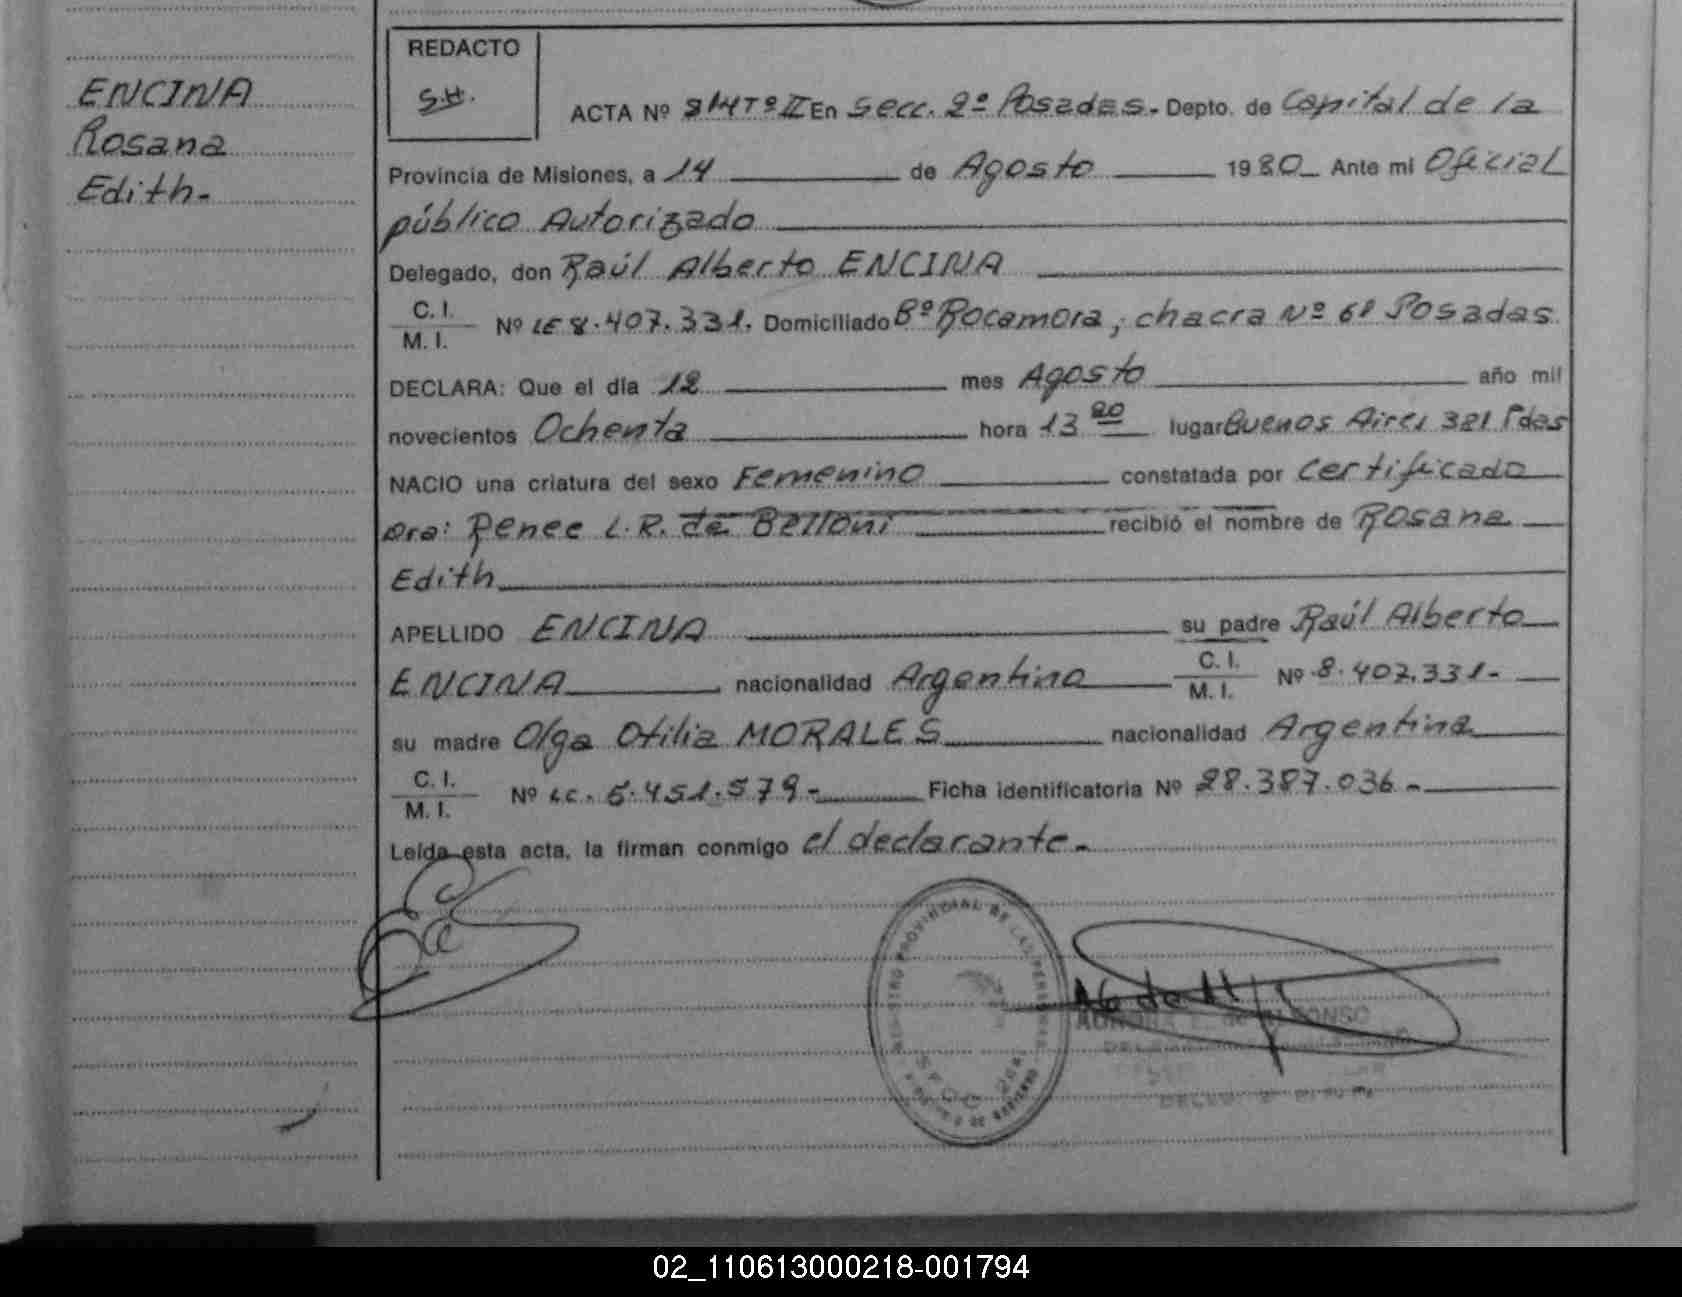 ENCINA
Rosana
Edith-
REDACTO
S.H.
ACTA Nº 314 Tº II En Secc. 2º Posadas. Depto. de Capital de la
Provincia de Misiones, a 14 de Agosto 1980 Ante mi Oficial
público Autorizado
Delegado, don Raúl Alberto ENCINA
C. I.
M. I.
Nº LE 8.407.331. Domiciliado Bº Rocamora, chacra Nº 61 Posadas
DECLARA: Que el día 12 mes Agosto año mil
novecientos Ochenta hora 13 20 lugar Buenos Aires 381 Pdas
NACIO una criatura del sexo Femenino constatada por certificado
Dra: Renee L. R. de Belloni recibió el nombre de Rosana
Edith
APELLIDO ENCINA su padre Raúl Alberto
ENCINA nacionalidad Argentina C. I.
M. I.
Nº 8.407.331-
su madre Olga Otilia MORALES nacionalidad Argentina
C. I.
M. I.
Nº LC. 5.451.579- Ficha identificatoria Nº 28.387.036-
Leída esta acta, la firman conmigo el declarante-
REGISTRO PROVINCIAL DE LAS PERSONAS
02_110613000218-001794